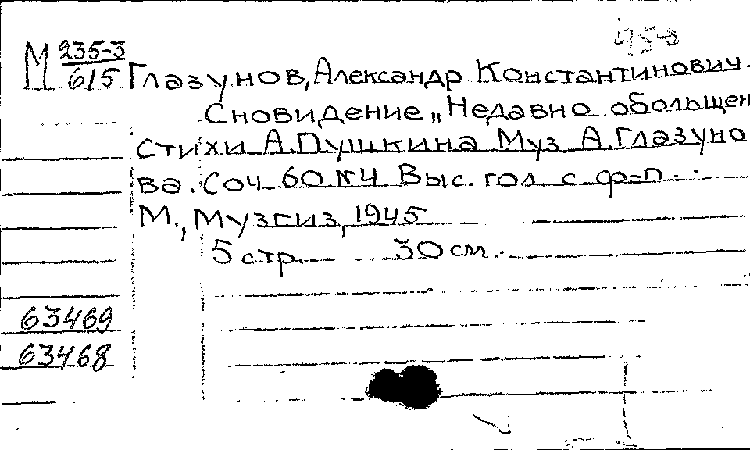 М 235-3/615
Глазунов, Александр Константинович.
Сновидение „Недавно обольщен
стихи А. Пушкина Муз А. Глазуно
ва. Соч 60 №4 Выс. гол с ф-п
М., Музгиз, 1945
5 стр. 30 см.
63469
63468